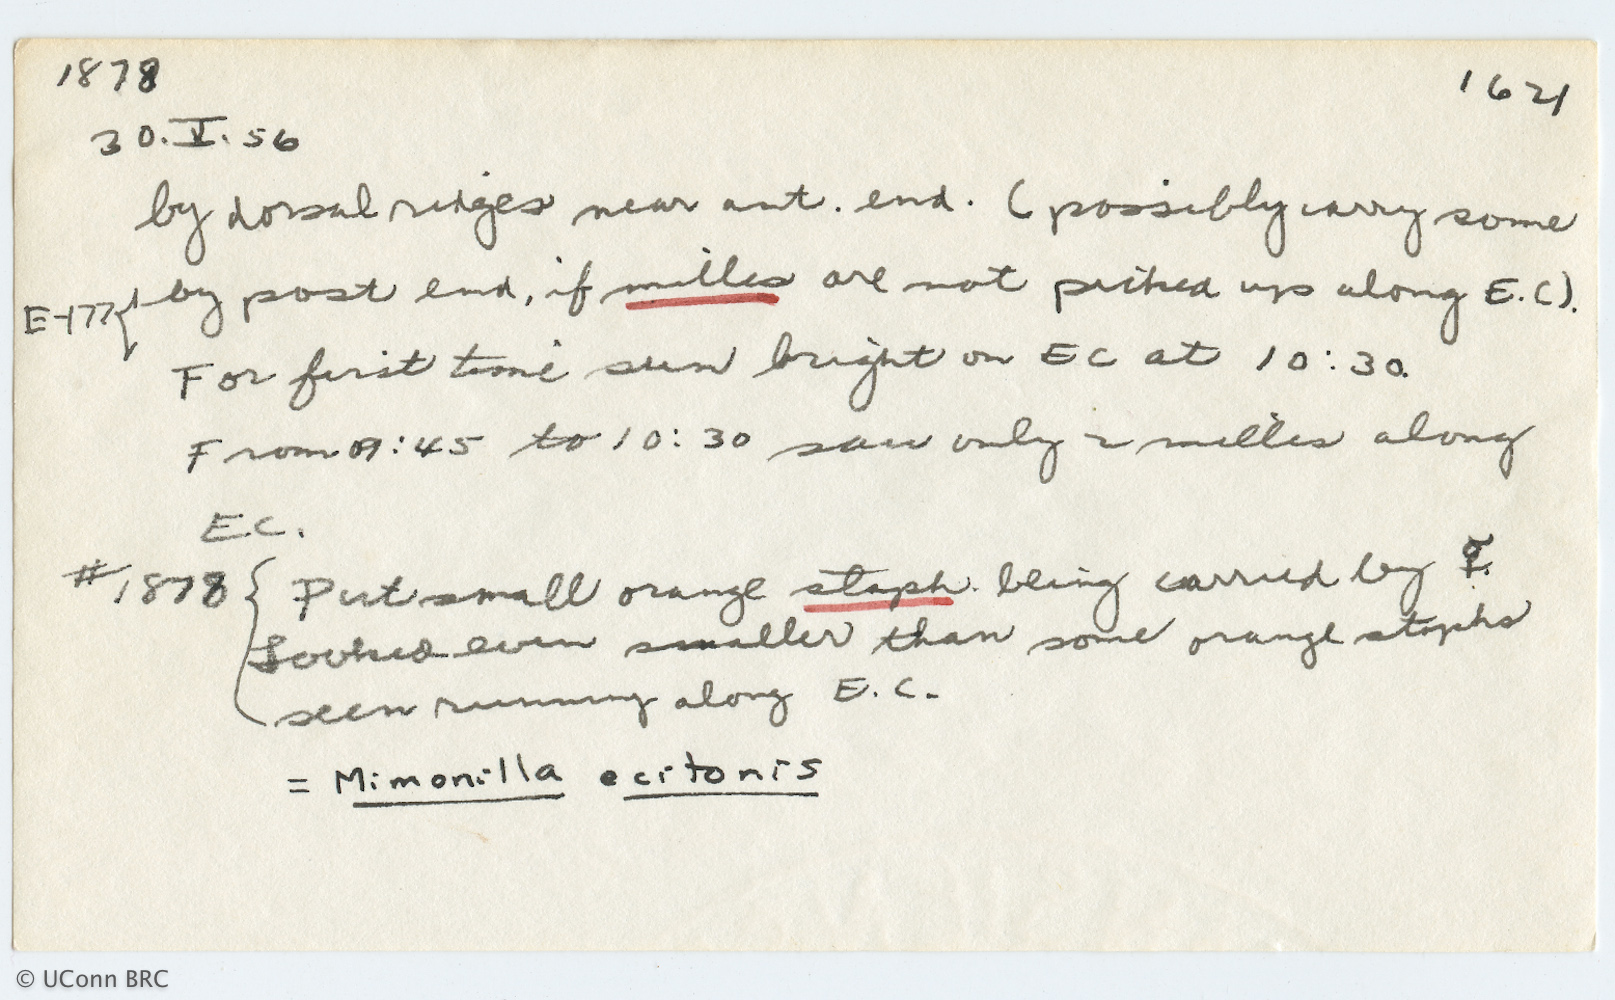 1878 1621
30.V.56
by dorsal ridges near ant. end. (possibly carry some
E-177 { by post end, if milles are not picked up along E.C).
For first time sun bright on EC at 10:30.
From 09:45 to 10:30 saw only 2 milles along
E.C.
#1878 { Put small orange staph. being carried by
Looked even smaller than some orange staphs
seen running along E.C.
= Mimonilla ecitonis
© UConn BRC